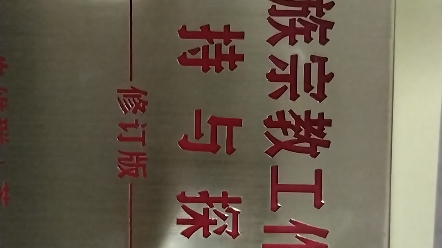 族宗教工作
持与探
修订版